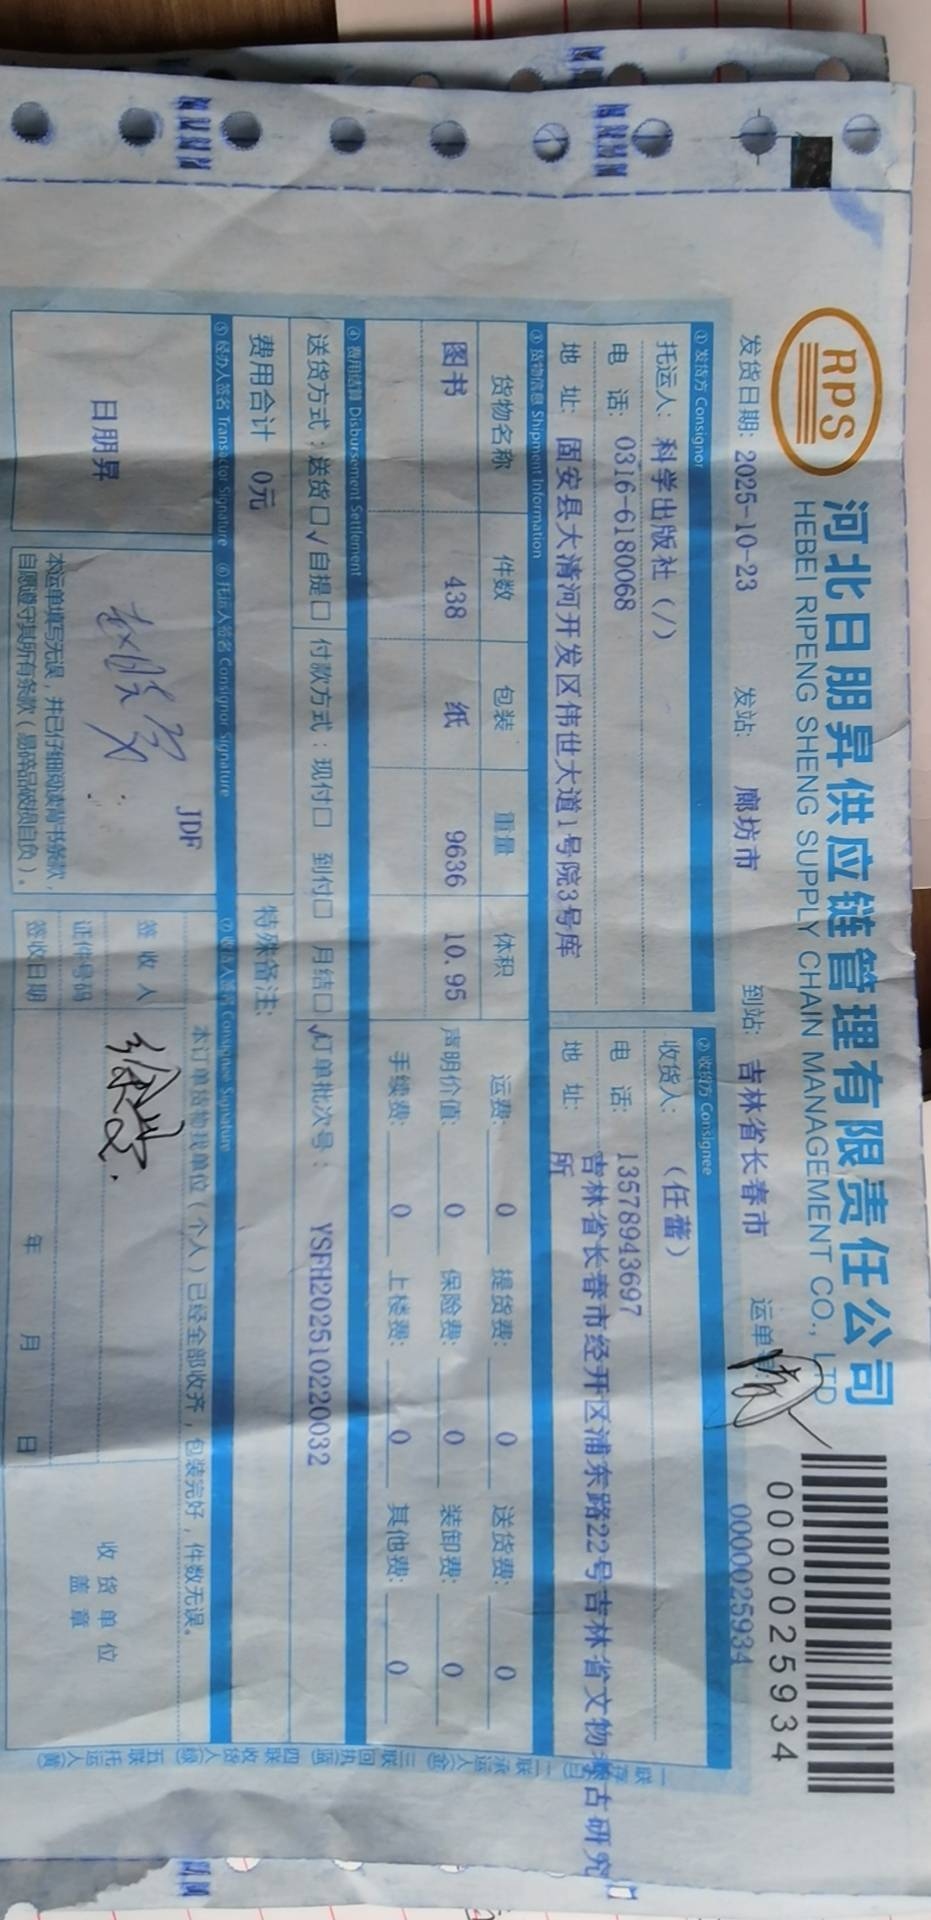 RPS
河北日朋昇供应链管理有限责任公司
HEBEI RIPENG SHENG SUPPLY CHAIN MANAGEMENT CO., LTD
0000025934
发货日期: 2025-10-23 发站: 廊坊市 到站: 吉林省长春市 运单 0000025934
① 发货方 Consignor
托运人: 科学出版社 (/)
电 话: 0316-6180068
地 址: 固安县大清河开发区伟世大道1号院3号库
② 收货方 Consignee
收货人: (任蕾)
电 话: 13578943697
地 址: 吉林省长春市经开区浦东路22号吉林省文物考古研究
所
③ 货物信息 Shipment Information
货物名称 件数 包装 重量 体积
图书 438 纸 9636 10.95
运费: 0 提货费: 0 送货费: 0
声明价值: 0 保险费: 0 装卸费: 0
手续费: 0 上楼费: 0 其他费: 0
④ 费用结算 Disbursement Settlement
送货方式: 送货□√ 自提□ 付款方式: 现付□ 到付□ 月结□√ 订单批次号: YSFH202510220032
费用合计 0元
特殊备注:
⑤ 经办人签名 Transactor Signature
日朋昇
⑥ 托运人签名 Consignor Signature
JDF
本运单填写无误,并已仔细阅读背书条款,
自愿遵守其所有条款(易碎品破损自负)。
⑦ 收货人签名 Consignee Signature
本订单货物我单位(个人)已经全部收齐,包装完好,件数无误。
签 收 人
证件号码
签收日期 年 月 日
收 货 单 位
盖 章
一联 存 二联 承运人 三联 回执 四联 收货人 五联 托运人